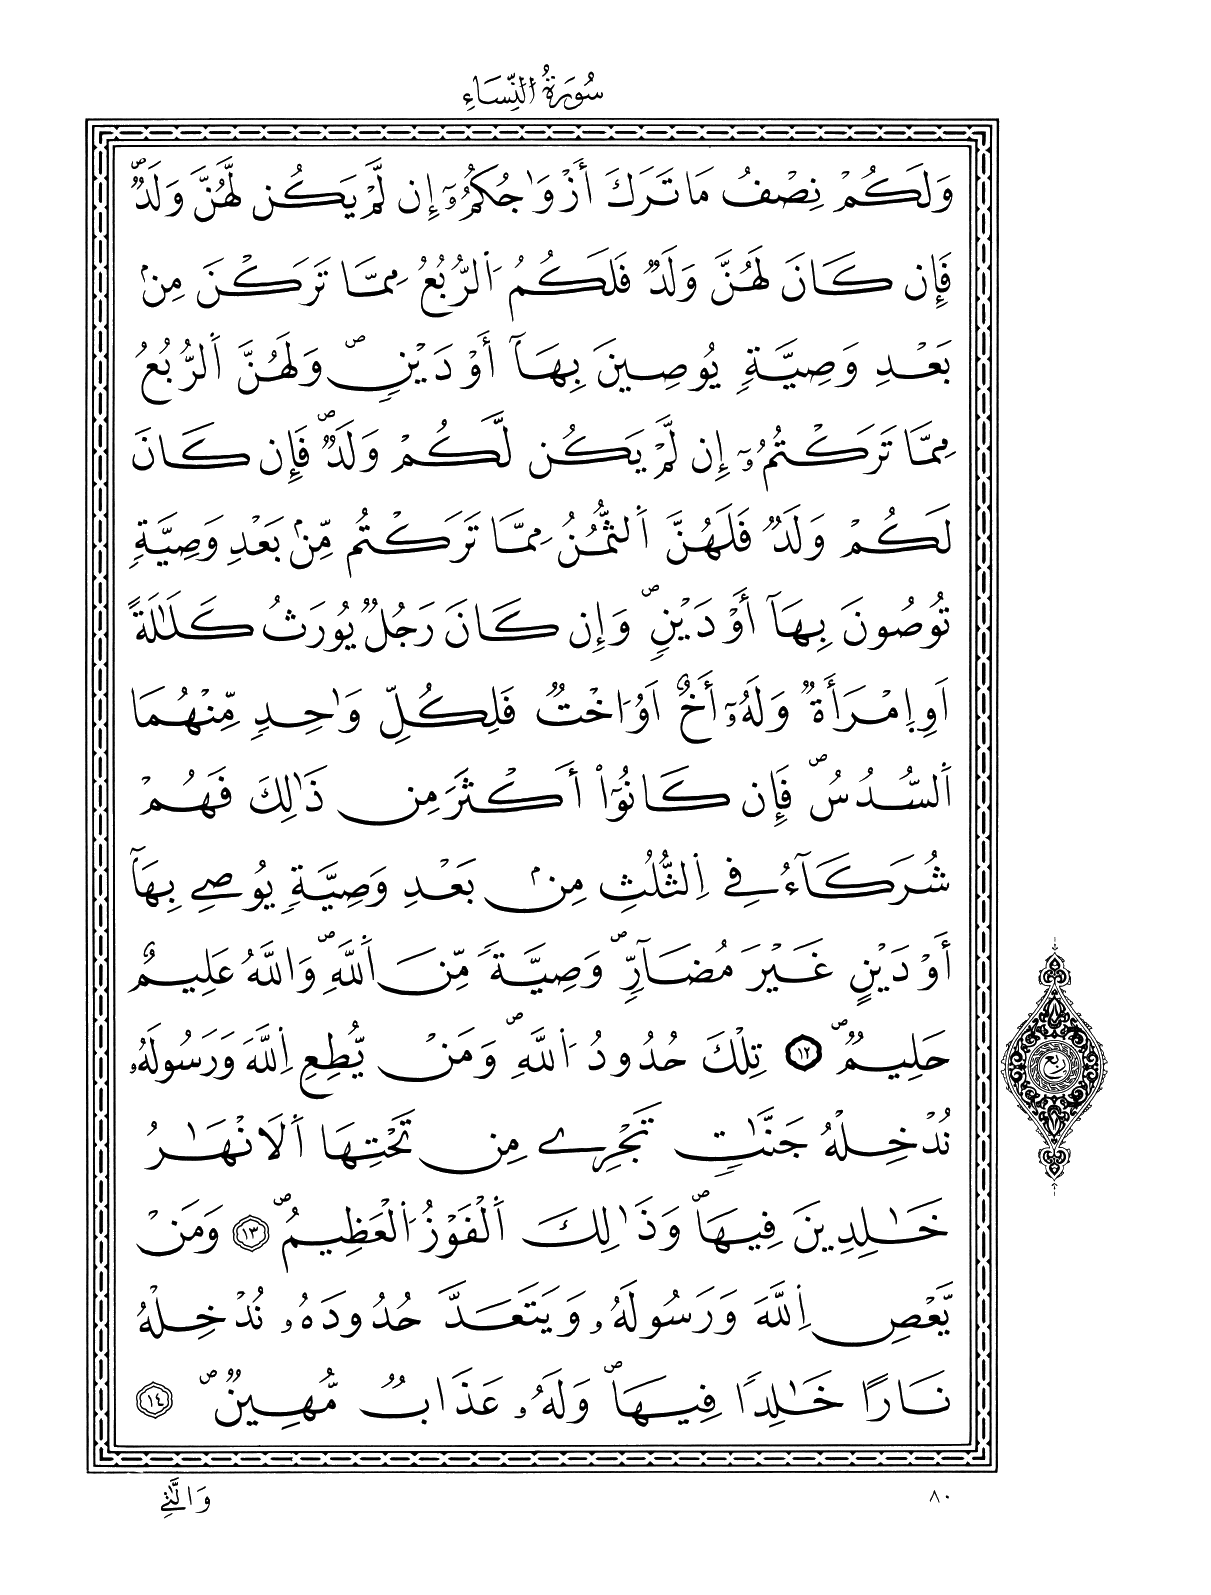 سُورَةُ النِّسَاءِ
وَلَكُمْ نِصْفُ مَا تَرَكَ أَزْوَٰجُكُمُۥٓ إِن لَّمْ يَكُن لَّهُنَّ وَلَدٌۖ
فَإِن كَانَ لَهُنَّ وَلَدٌ فَلَكُمُ اُ۬لرُّبُعُ مِمَّا تَرَكْنَ مِنۢ
بَعْدِ وَصِيَّةٍ يُوصِينَ بِهَآ أَوْ دَيْنٍۖ وَلَهُنَّ اَ۬لرُّبُعُ
مِمَّا تَرَكْتُمُۥٓ إِن لَّمْ يَكُن لَّكُمْ وَلَدٌۖ فَإِن كَانَ
لَكُمْ وَلَدٌ فَلَهُنَّ اَ۬لثُّمُنُ مِمَّا تَرَكْتُم مِّنۢ بَعْدِ وَصِيَّةٍ
تُوصُونَ بِهَآ أَوْ دَيْنٍۖ وَإِن كَانَ رَجُلٌ يُورَثُ كَلَٰلَةً
اَوِ اِ۪مْرَأَةٌ وَلَهُۥٓ أَخٌ اَوُ ا۟خْتٌ فَلِكُلِّ وَٰحِدٍ مِّنْهُمَا
اَ۬لسُّدُسُۖ فَإِن كَانُوٓا۟ أَكْثَرَ مِن ذَٰلِكَ فَهُمْ
شُرَكَآءُ فِے اِ۬لثُّلُثِ مِنۢ بَعْدِ وَصِيَّةٍ يُوصِے بِهَآ
أَوْ دَيْنٍ غَيْرَ مُضَآرٍّۖ وَصِيَّةً مِّنَ اَ۬للَّهِۖ وَاللَّهُ عَلِيمٌ
حَلِيمٌۖ ١٢ تِلْكَ حُدُودُ اُ۬للَّهِۖ وَمَنْ يُّطِعِ اِ۬للَّهَ وَرَسُولَهُۥ
نُدْخِلْهُ جَنَّٰتٍ تَجْرِے مِن تَحْتِهَا اَ۬لَانْهَٰرُ
خَٰلِدِينَ فِيهَاۖ وَذَٰلِكَ اَ۬لْفَوْزُ اُ۬لْعَظِيمُۖ ١٣ وَمَنْ
يَّعْصِ اِ۬للَّهَ وَرَسُولَهُۥ وَيَتَعَدَّ حُدُودَهُۥ نُدْخِلْهُ
نَارًا خَٰلِدًا فِيهَاۖ وَلَهُۥ عَذَابٌ مُّهِينٌۖ ١٤
ربع
٨٠
وَالَّٰتِے